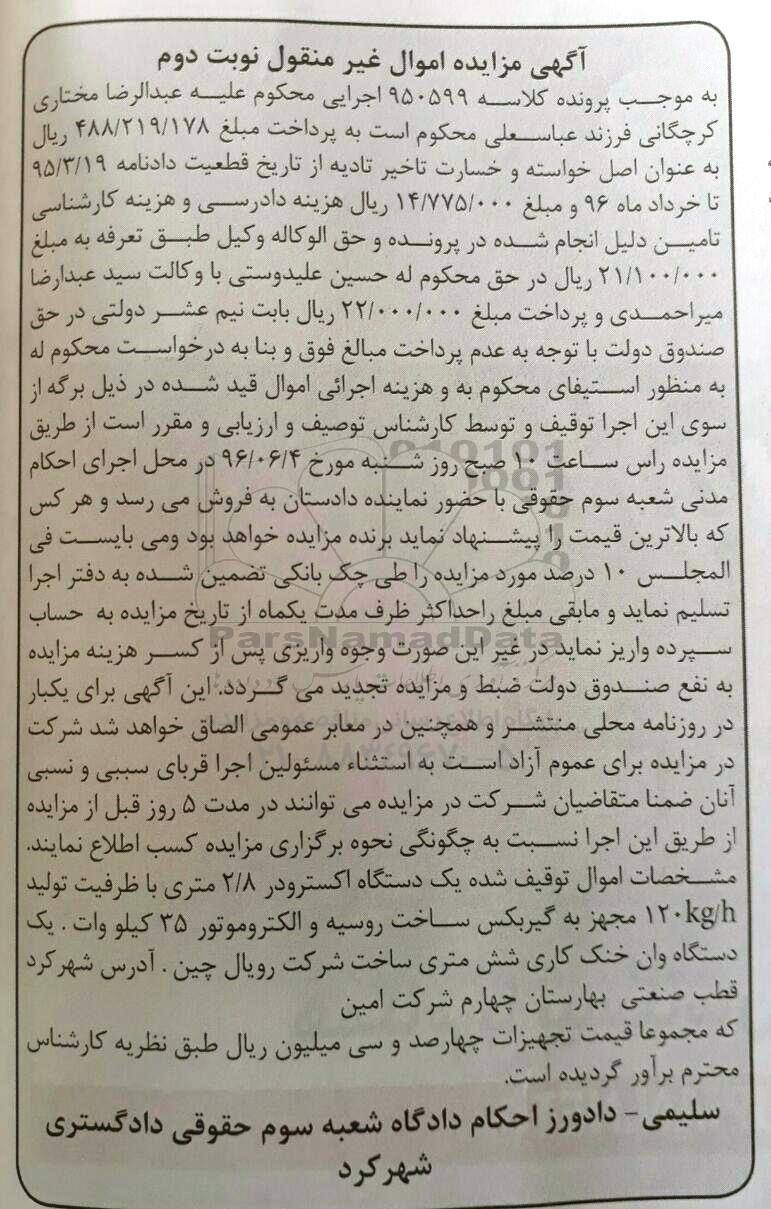 آگهی مزایده اموال غیر منقول نوبت دوم
به موجب پرونده کلاسه ۹۵۰۵۹۹ اجرایی محکوم علیه عبدالرضا مختاری
کرچگانی فرزند عباسعلی محکوم است به پرداخت مبلغ ۴۸۸/۲۱۹/۱۷۸ ریال
به عنوان اصل خواسته و خسارت تاخیر تادیه از تاریخ قطعیت دادنامه ۹۵/۳/۱۹
تا خرداد ماه ۹۶ و مبلغ ۱۴/۷۷۵/۰۰۰ ریال هزینه دادرسی و هزینه کارشناسی
تامین دلیل انجام شده در پرونده و حق الوکاله وکیل طبق تعرفه به مبلغ
۲۱/۱۰۰/۰۰۰ ریال در حق محکوم له حسین علیدوستی با وکالت سید عبدارضا
میراحمدی و پرداخت مبلغ ۲۲/۰۰۰/۰۰۰ ریال بابت نیم عشر دولتی در حق
صندوق دولت با توجه به عدم پرداخت مبالغ فوق و بنا به درخواست محکوم له
به منظور استیفای محکوم به و هزینه اجرائی اموال قید شده در ذیل برگه از
سوی این اجرا توقیف و توسط کارشناس توصیف و ارزیابی و مقرر است از طریق
مزایده راس ساعت ۱۰ صبح روز شنبه مورخ ۹۶/۰۶/۴ در محل اجرای احکام
مدنی شعبه سوم حقوقی با حضور نماینده دادستان به فروش می رسد و هر کس
که بالاترین قیمت را پیشنهاد نماید برنده مزایده خواهد بود ومی بایست فی
المجلس ۱۰ درصد مورد مزایده را طی چک بانکی تضمین شده به دفتر اجرا
تسلیم نماید و مابقی مبلغ راحداکثر ظرف مدت یکماه از تاریخ مزایده به حساب
سپرده واریز نماید در غیر این صورت وجوه واریزی پس از کسر هزینه مزایده
به نفع صندوق دولت ضبط و مزایده تجدید می گردد. این آگهی برای یکبار
در روزنامه محلی منتشر و همچنین در معابر عمومی الصاق خواهد شد شرکت
در مزایده برای عموم آزاد است به استثناء مسئولین اجرا قربای سببی و نسبی
آنان ضمنا متقاضیان شرکت در مزایده می توانند در مدت ۵ روز قبل از مزایده
از طریق این اجرا نسبت به چگونگی نحوه برگزاری مزایده کسب اطلاع نمایند.
مشخصات اموال توقیف شده یک دستگاه اکسترودر ۲/۸ متری با ظرفیت تولید
۱۲۰kg/h مجهز به گیربکس ساخت روسیه و الکتروموتور ۳۵ کیلو وات . یک
دستگاه وان خنک کاری شش متری ساخت شرکت رویال چین . آدرس شهرکرد
قطب صنعتی بهارستان چهارم شرکت امین
که مجموعا قیمت تجهیزات چهارصد و سی میلیون ریال طبق نظریه کارشناس
محترم برآور گردیده است.
سلیمی- دادورز احکام دادگاه شعبه سوم حقوقی دادگستری
شهرکرد
ParsNamadData